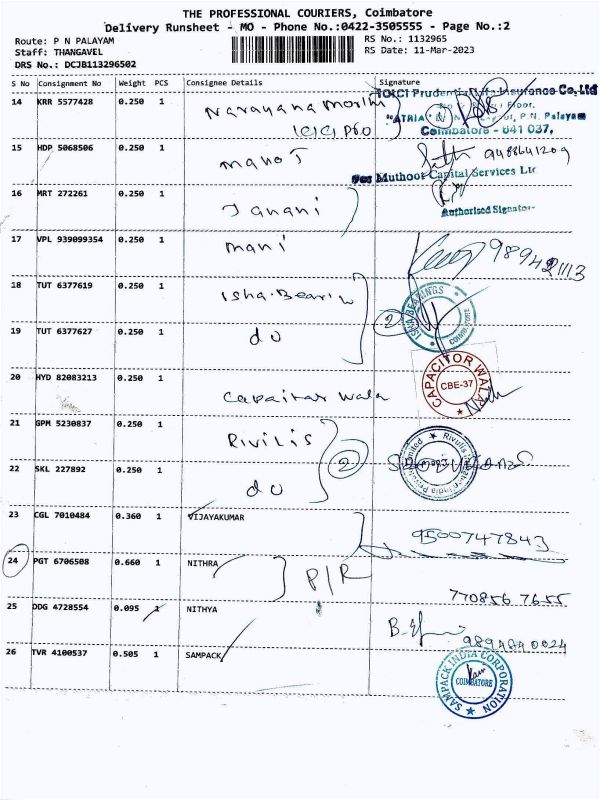 THE PROFESSIONAL COURIERS, Coimbatore
Delivery Runsheet - MO - Phone No.:0422-3505555 - Page No.:2
Route: P N PALAYAM
RS No.: 1132965
Staff: THANGAVEL
RS Date: 11-Mar-2023
DRS No.: DCJB113296502
S No Consignment No Weight PCS Consignee Details Signature
14 KRR 5577428 0.250 1 Narayana Morthi
ICICI Pro
ICICI Prudential Life Insurance Co, Ltd
Floor,
"ATRIA" P.N. Palayam
Coimbatore - 641 037.
15 HDP 5068506 0.250 1 Manoj
9488641209
For Muthoot Capital Services Ltd
16 MRT 272261 0.250 1 Janani
Authorised Signatory
17 VPL 939099354 0.250 1 Mani
18 TUT 6377619 0.250 1 Isha-Bearin
2
ISHA BEARINGS COIMBATORE
19 TUT 6377627 0.250 1 do
20 HYD 82083213 0.250 1 Capaitar Wala
CAPACITOR WALA
CBE-37
21 GPM 5230837 0.250 1 Rivilis
2
22 SKL 227892 0.250 1 do
23 CGL 7010484 0.360 1 VIJAYAKUMAR
9500747843
24 PGT 6706508 0.660 1 NITHRA
P/R
770856 7655
25 DDG 4728554 0.095 1 NITHYA
9894840024
26 TVR 4100537 0.505 1 SAMPACK
SAMPACK INDIA CORPORATION
COIMBATORE